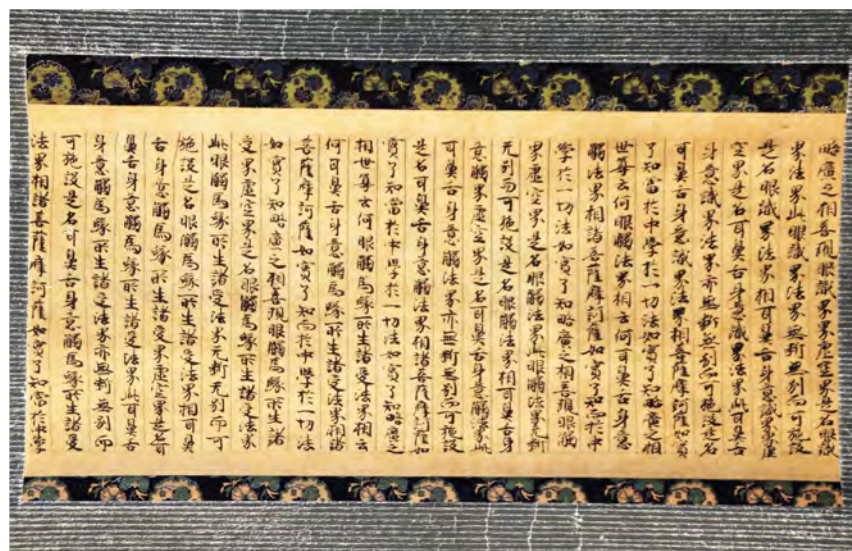 略廣之相善現眼識界界虛空界是名眼識
界法界此眼識界法界無斷無別而可施設
是名眼識界法界相耳鼻舌身意識界界虛
空界是名耳鼻舌身意識界法界此耳鼻舌
身意識界法界亦無斷無別而可施設是名
耳鼻舌身意識界法界相菩薩摩訶薩如實
了知當於中學於一切法如實了知略廣之相
世尊云何眼觸法界相云何耳鼻舌身意
觸法界相諸菩薩摩訶薩如實了知而於中
學於一切法如實了知略廣之相善現眼觸
界虛空界是名眼觸法界此眼觸法界無斷
无別而可施設是名眼觸法界相耳鼻舌身
意觸界虛空界是名耳鼻舌身意觸法界此
耳鼻舌身意觸法界亦無斷無別而可施設
是名耳鼻舌身意觸法界相諸菩薩摩訶薩如
實了知當於中學於一切法如實了知略廣之
相世尊云何眼觸為緣所生諸受法界相云
何耳鼻舌身意觸為緣所生諸受法界相諸
菩薩摩訶薩如實了知而於中學於一切法
如實了知略廣之相善現眼觸為緣所生諸
受界虛空界是名眼觸為緣所生諸受法界
此眼觸為緣所生諸受法界无斷无別而可
施設是名眼觸為緣所生諸受法界相耳鼻
舌身意觸為緣所生諸受界虛空界是名耳
鼻舌身意觸為緣所生諸受法界此耳鼻舌
身意觸為緣所生諸受法界亦無斷無別而
可施設是名耳鼻舌身意觸為緣所生諸受
法界相諸菩薩摩訶薩如實了知當於中學